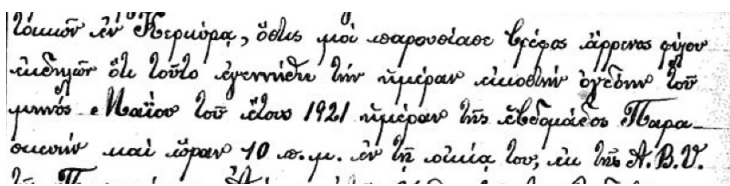 τόκκον ἐν Κερκύρᾳ, ὅστις μοὶ παρουσίασε βρέφος ἄρρενος φύλου
ἐκδηλῶν ὅτι τοῦτο ἐγεννήθη τὴν ἡμέραν εἰκοστὴν ὀγδόην τοῦ
μηνός Μαΐου τοῦ ἔτους 1921 ἡμέραν τῆς ἑβδομάδος Παρα-
σκευήν καὶ ὥραν 10 π.μ. ἐν τῇ οἰκίᾳ του, ἐκ τῆς Α.Β.Υ.
τῆς